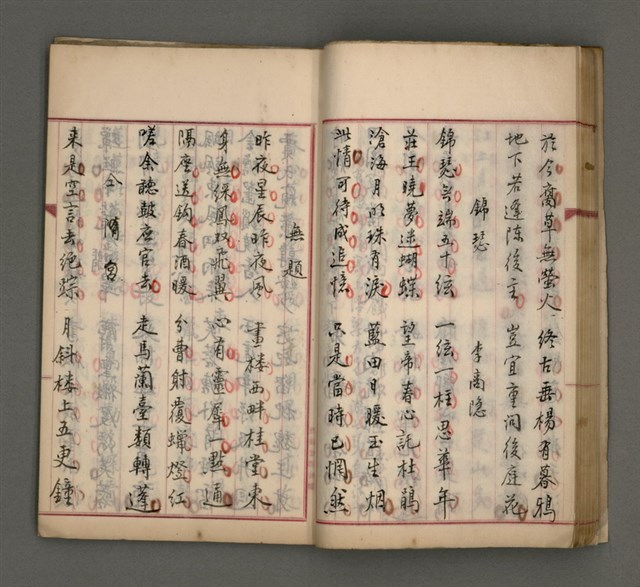 於今腐草無螢火　終古垂楊有暮鴉
地下若逢陳後主　豈宜重问後庭花
錦瑟　李商隐
錦瑟無端五十絃　一絃一柱思華年
莊王曉夢迷蝴蝶　望帝春心託杜鵑
滄海月明珠有淚　藍田日暖玉生烟
此情可待成追憶　只是當時已惘然
無題
昨夜星辰昨夜风　畫楼西畔桂堂東
身無綵鳳双飛翼　心有靈犀一點通
隔座送鈎春酒暖　分曹射覆蠟燈红
嗟余聽鼓應官去　走馬蘭臺類轉蓬
仝　隋宫
来是空言去绝踪　月斜楼上五更鐘